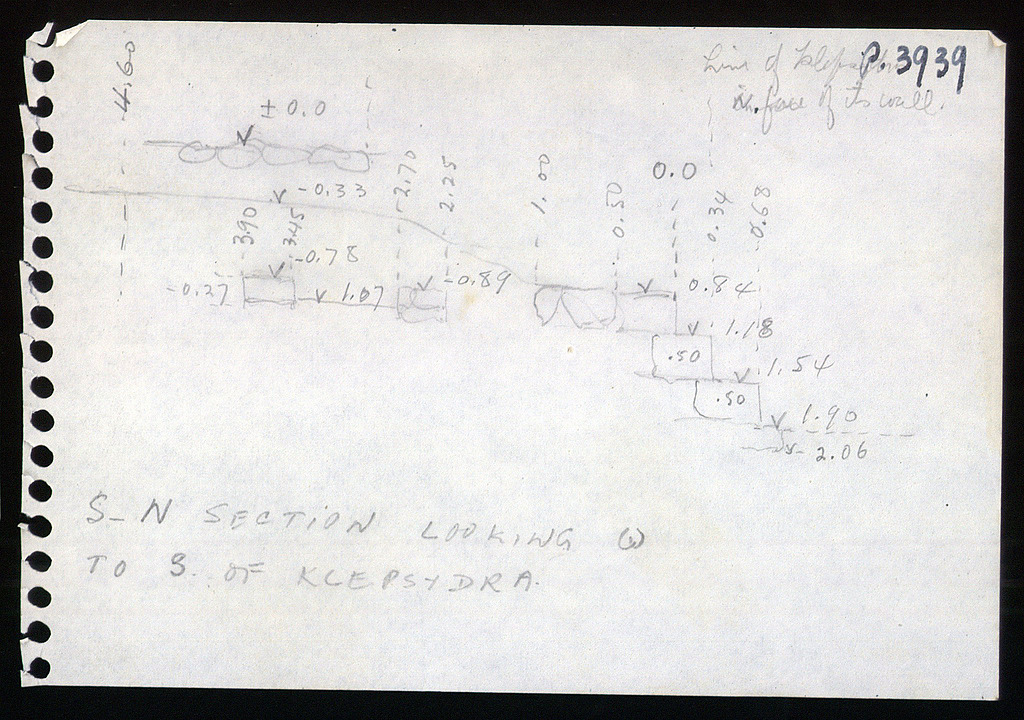 P. 3939
Line of Klepsydra
N. face of its wall.
4.60
± 0.0
0.0
-0.33
2.70
2.25
1.00
0.50
0.34
0.68
3.90
3.45
-0.78
-0.27
1.07
-0.89
0.84
1.18
.50
1.54
.50
1.90
2.06
S-N SECTION LOOKING W
TO S. OF KLEPSYDRA.